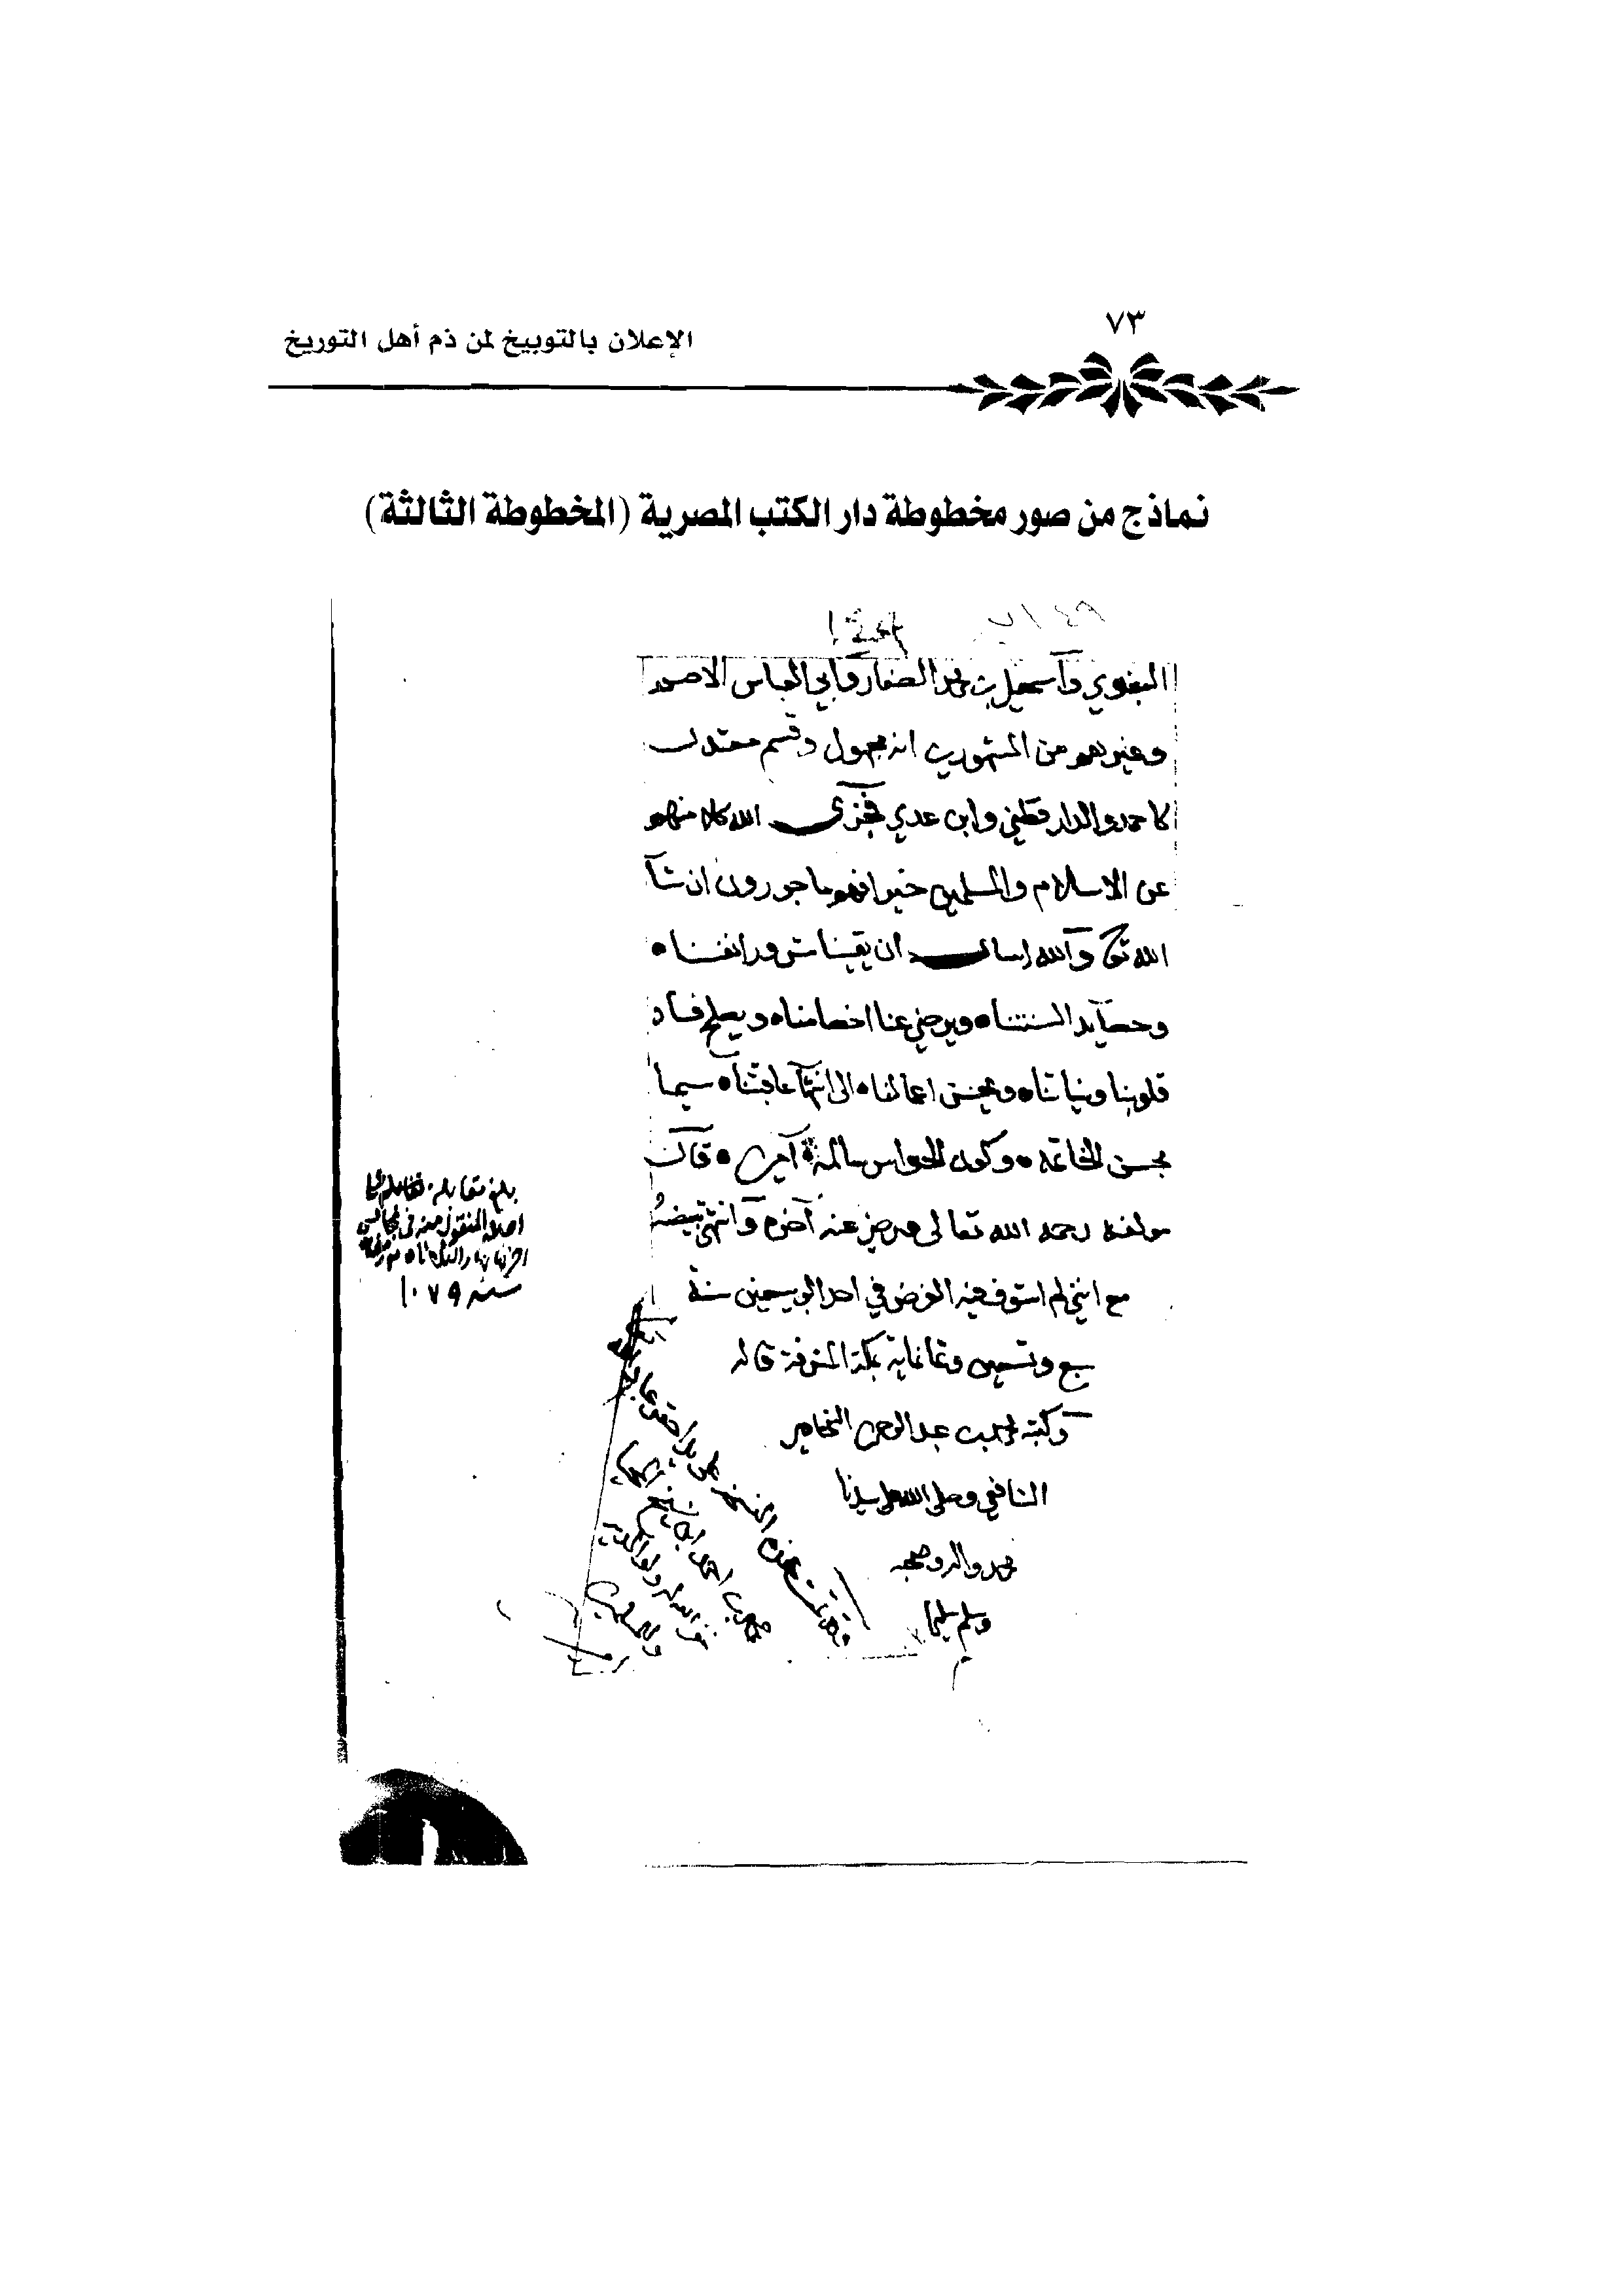 ٧٣
الإعلان بالتوبيخ لمن ذم أهل التوريخ
نماذج من صور مخطوطة دار الكتب المصرية (المخطوطة الثالثة)
البغوي وآسمعيل بن محمد الصفار وآبي العباس الاصم
وغيرهم من المشهورين انه مجهول وقسم معتدل
كاحمد والدارقطني وابن عدي فجزى الله كلا منهم
عن الاسلام والمسلمين خيرا فهم ماجورون ان شآ
الله تعالى وآلله اسال ان يقينا شرور انفسنا ه
وحصآيد السنتنا ه ويرضي عنا اخصامنا ه ويصلح فساد
قلوبنا ونياتنا ه ويحسن اعمالنا ه الى انتهآ عاقبتنا ه سيما
بحسن الخاتمة ه وكون الحواس سالمة آمين ه قال
مولفه رحمه الله تعالى ورضي عنه آخره وآنتهى تبييضه
مع انني لم استوف فيه الغرض في احد الربيعين سنة
سبع وتسعين وثمانماية بمكة المشرفة قاله
وكتبه محمد بن عبد الرحمن السخاوي
الشافعي وصلى الله على سيدنا
محمد واله وصحبه
وسلم تسليما
بلغ مقابلة
اصله المنقول منه في مجالس
سنه ١٠٧٩